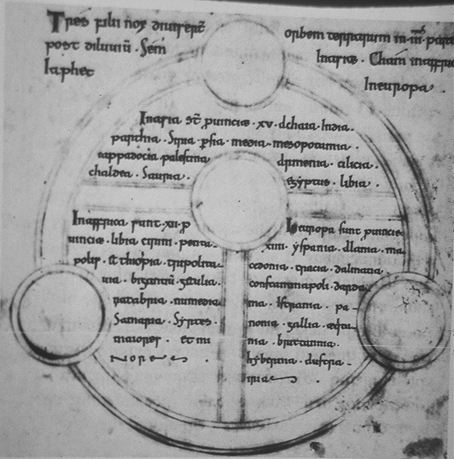 Tres filii noę diuiserūt orbem terrarum in .iii. partes
post diluuiū . Sem Inasia . Cham inaffrica
Iaphet Ineuropa .
Inasia st̄ ꝓuincię . xv . achaia . India .
parthia . Siria . ꝑsia . media . mesopotamia .
cappadocia palestina armenia . cilicia .
chaldea . Sauria . egyptus . libia .
Inaffrica sunt . xii . p
uincię . libia cirini . penta
polis . ethiopia . tripolita
na . bizantiū . getulia .
natabria . numedia
Samaria . Syrtes .
maiores . et mi
nores .
Ineuropa sunt ꝓuincie
xiiii . yspania . alama . ma
cedonia . tracia . dalmatia
constantinapoli . darda
nia . istrania . pa
nonia . gallia . eqta
nia . brittannia .
hybernia . austra
nia .